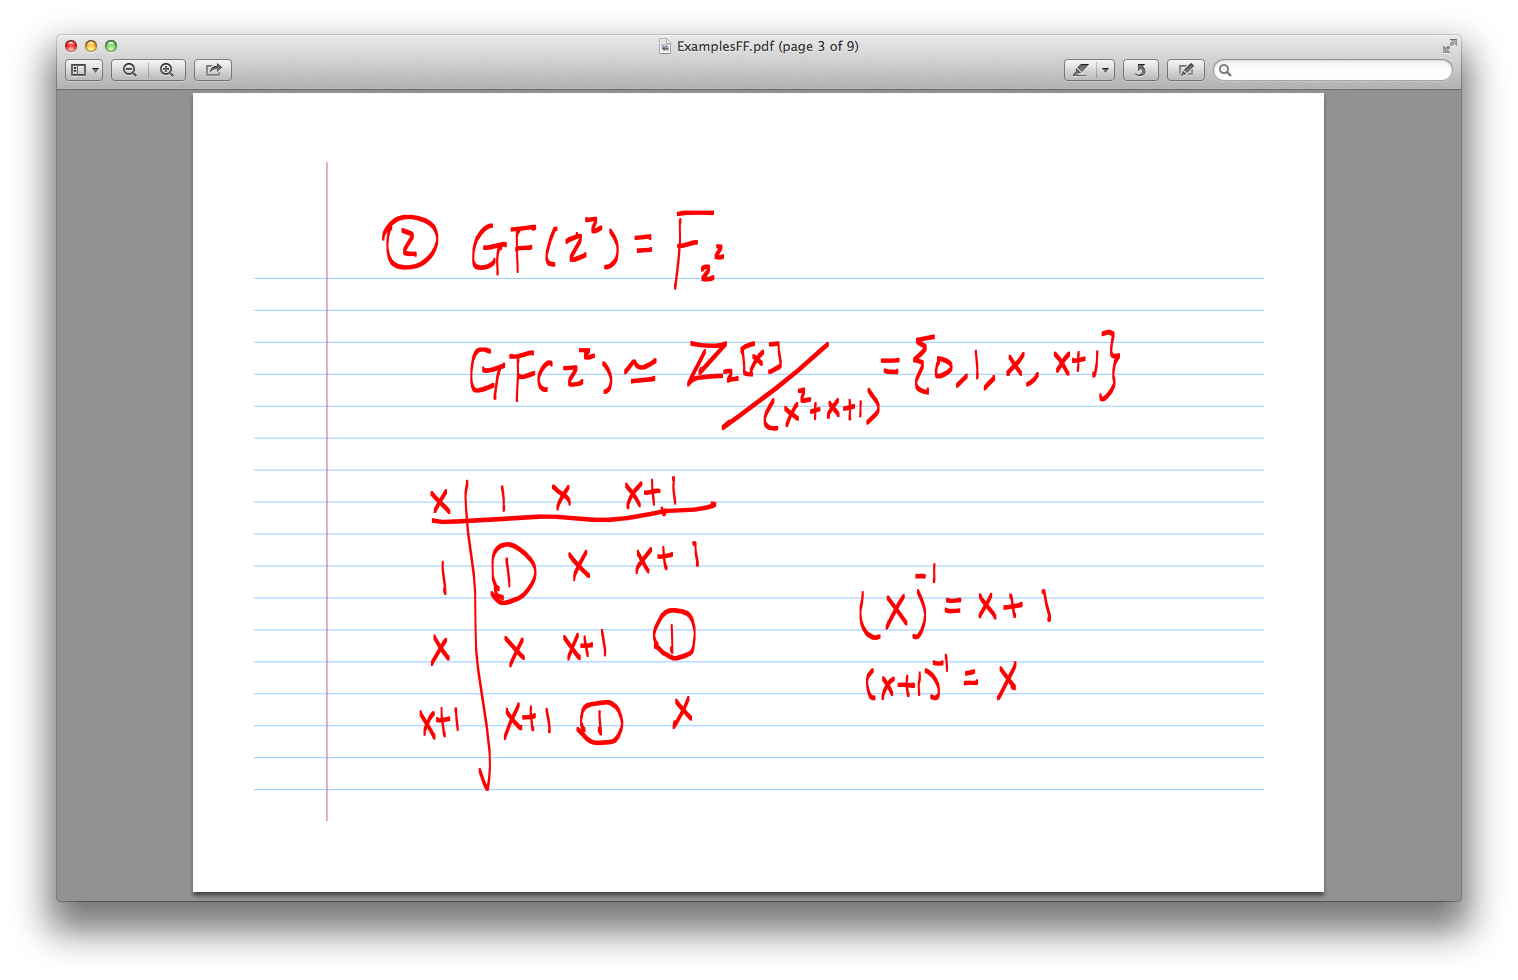 ExamplesFF.pdf (page 3 of 9)
② GF(2²) = F₂²
GF(2²) ≃ ℤ₂[x]/(x²+x+1) = {0, 1, x, x+1}
x | 1 x x+1
1 | ① x x+1
x | x x+1 ①
x+1 | x+1 ① x
(x)⁻¹ = x+1
(x+1)⁻¹ = x